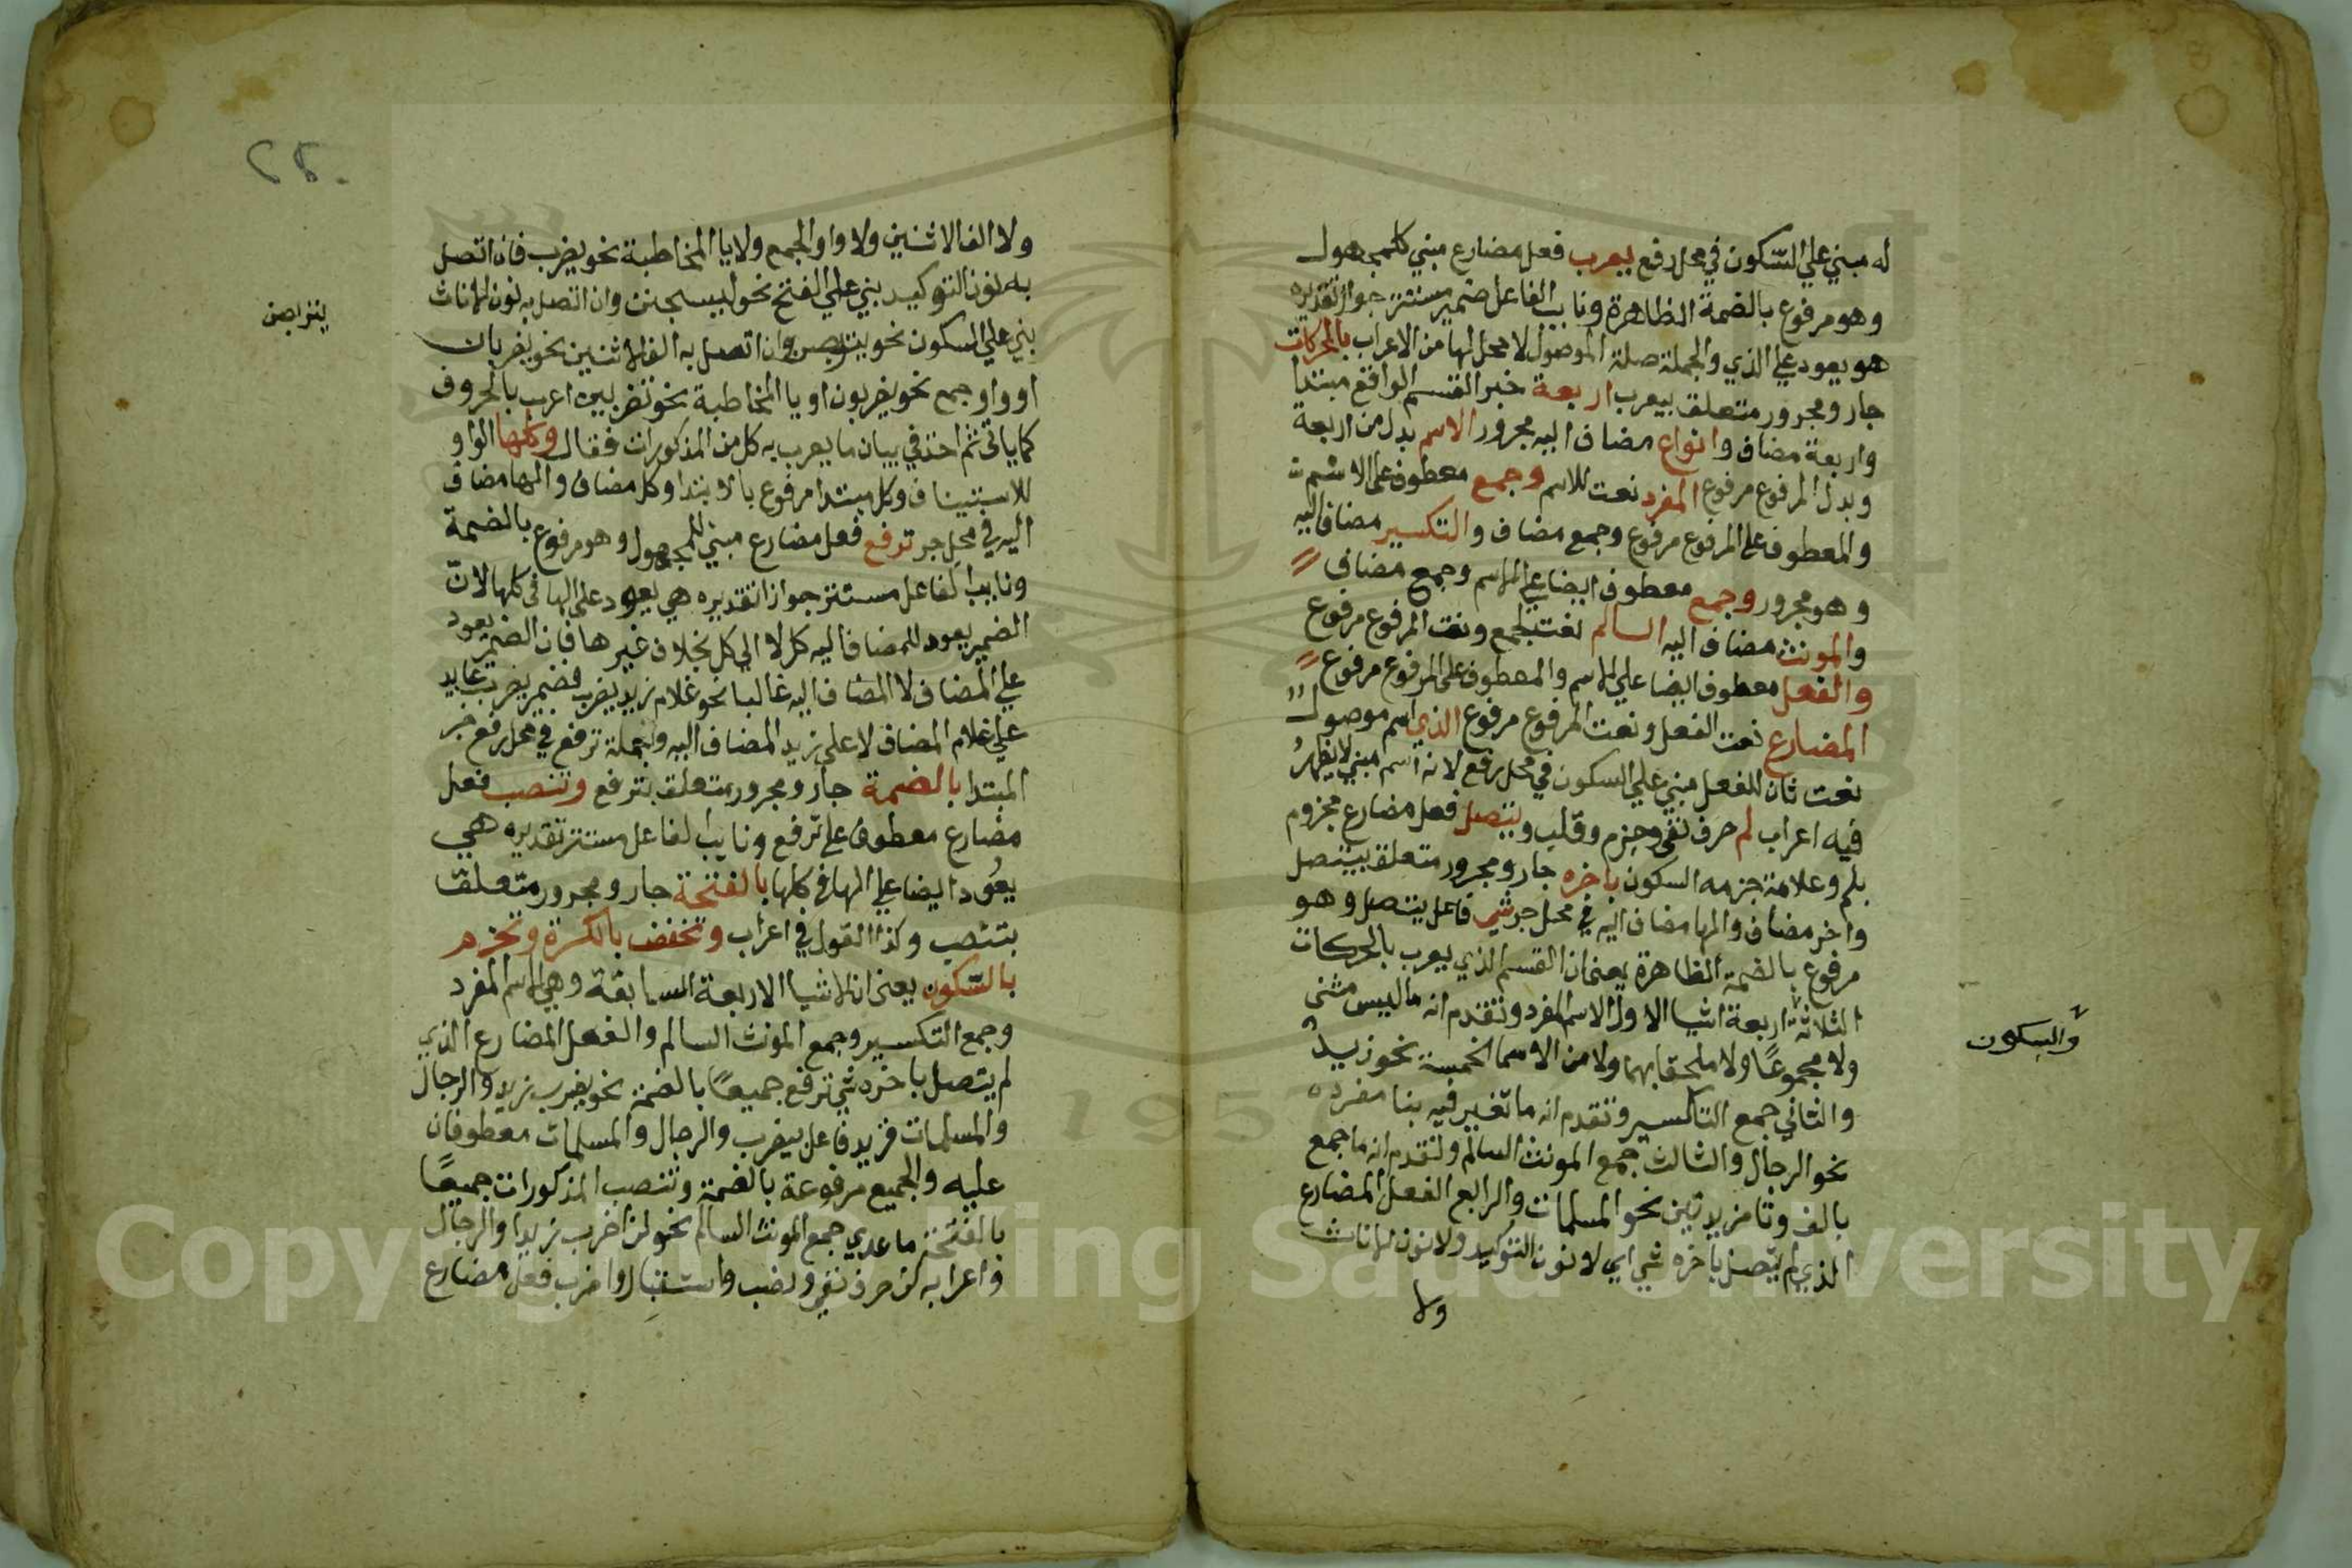 له مبني علي السكون في محل رفع يعرب فعل مضارع مبني كلمجهول
وهو مرفوع بالضمة الظاهرة ونايب الفاعل ضمير مستتر جوازا تقديره
هو يعود علي الذي والجملة صلة الموصول لا محل لها من الاعراب بالحركات
جار ومجرور متعلق بيعرب اربعة خبر القسم الواقع مبتدا
واربعة مضاف وانواع مضاف اليه مجرور الاسم بدل من اربعة
وبدل المرفوع مرفوع المفرد نعت للاسم وجمع معطوف علي الاسم
والمعطوف علي المرفوع مرفوع وجمع مضاف والتكسير مضاف اليه
وهو مجرور وجمع معطوف ايضا علي الاسم وجمع مضاف
والمونث مضاف اليه السالم نعت لجمع ونعت المرفوع مرفوع
والفعل معطوف ايضا علي الاسم والمعطوف علي المرفوع مرفوع
المضارع نعت الفعل ونعت المرفوع مرفوع الذي اسم موصول
نعت ثان للفعل مبني علي السكون في محل رفع لانه اسم مبني لا يظهر
فيه اعراب لم حرف نفي وجزم وقلب ويتصل فعل مضارع مجزوم
بلم وعلامة جزمه السكون باخره جار ومجرور متعلق بيتصل
واخر مضاف والها مضاف اليه في محل جر شي فاعل يتصل وهو
مرفوع بالضمة الظاهرة يعني ان القسم الذي يعرب بالحركات
الثلاثة اربعة اشيا الاول الاسم المفرد وتقدم انه ما ليس مثنى
والسكون
ولا مجموعًا ولا ملحقا بهما ولا من الاسما الخمسة نحو زيد
والثاني جمع التكسير وتقدم انه ما تغير فيه بنا مفرده
نحو الرجال والثالث جمع المونث السالم وتقدم انه ما جمع
بالف وتا مزيدتين نحو المسلمات والرابع الفعل المضارع
الذي لم يتصل باخره شي اي لا نون التوكيد ولا نون الاناث
ولا
٢٥
ولا الف الاثنين ولا واو الجمع ولا يا المخاطبة نحو يضرب فان اتصل
به نون التوكيد بني علي الفتح نحو ليسجنن وان اتصل به نون الاناث
بني علي السكون نحو يتربصن وان اتصل به الف الاثنين نحو يضربان
يتربصن
او واو جمع نحو يضربون او يا المخاطبة نحو تضربين اعرب بالحروف
كما ياتي ثم اخذ في بيان ما يعرب به كل من المذكورات فقال وكلها الواو
للاستيناف وكل مبتدا مرفوع بالابتدا وكل مضاف والها مضاف
اليه في محل جر ترفع فعل مضارع مبني للمجهول وهو مرفوع بالضمة
ونايب الفاعل مستتر جوازا تقديره هي يعود علي الها في كلها لان
الضمير يعود للمضاف اليه كل لا الي كل بخلاف غيرها فان الضمير يعود
علي المضاف لا المضاف اليه غالبا نحو غلام زيد يضرب فضمير يضرب عايد
علي غلام المضاف لا علي زيد المضاف اليه والجملة ترفع في محل رفع خبر
المبتدا بالضمة جار ومجرور متعلق بترفع وتنصب فعل
مضارع معطوف علي ترفع ونايب الفاعل مستتر تقديره هي
يعود ايضا علي الها في كلها بالفتحة جار ومجرور متعلق
بتنصب وكذا القول في اعراب وتخفض بالكسرة وتجزم
بالسكون يعني ان الاشيا الاربعة السابقة وهي الاسم المفرد
وجمع التكسير وجمع المونث السالم والفعل المضارع الذي
لم يتصل باخره شي ترفع جميعًا بالضمة نحو يضرب زيد والرجال
والمسلمات فزيد فاعل بيضرب والرجال والمسلمات معطوفان
عليه والجميع مرفوعة بالضمة وتنصب المذكورات جميعًا
بالفتحة ما عدي جمع المونث السالم نحو لن اضرب زيدا والرجال
واعرابه لن حرف نفي ونصب واستقبال واضرب فعل مضارع
Copyright © King Saud University
195